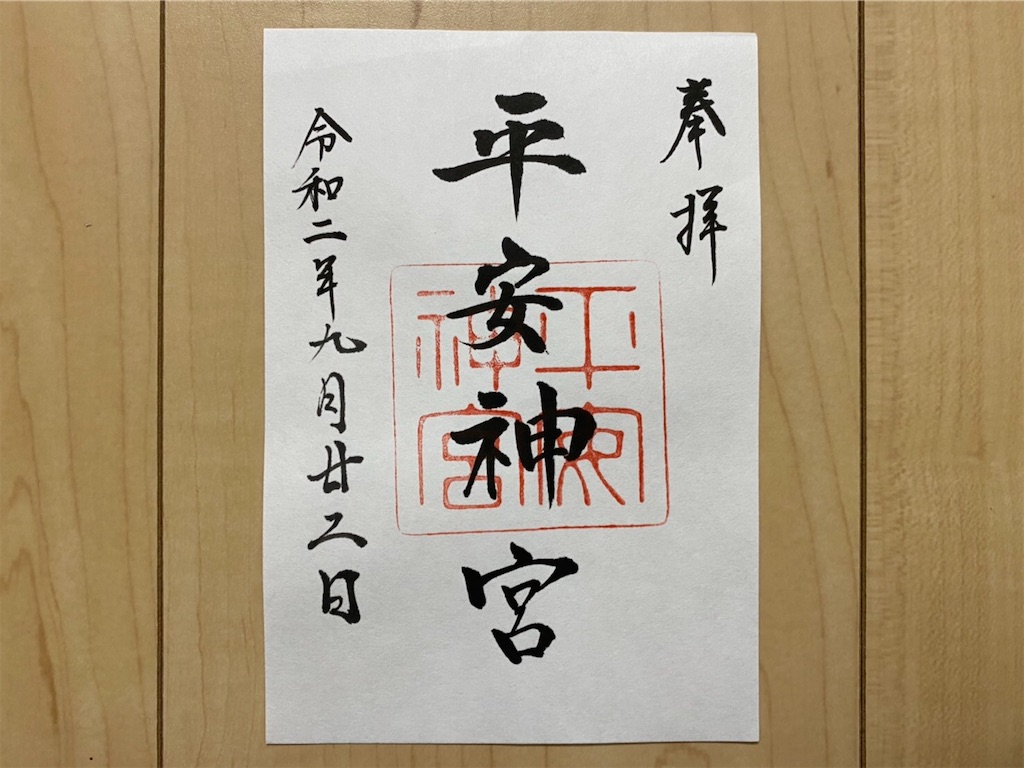 奉拝
平安神宮
平安神宮
令和二年九月廿二日